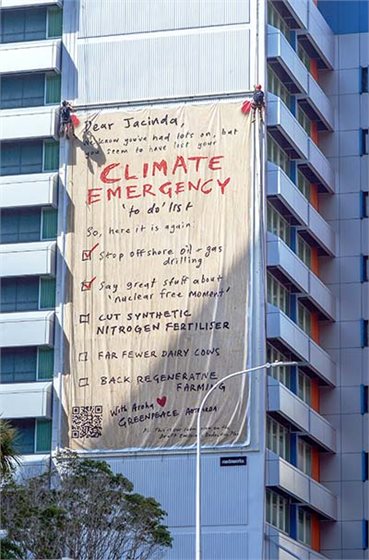 Dear Jacinda,
We know you've had lots on, but
you seem to have lost your
CLIMATE
EMERGENCY
'to do' list
So, here it is again
Stop offshore oil + gas
drilling
Say great stuff about
'nuclear free moment'
CUT SYNTHETIC
NITROGEN FERTILISER
FAR FEWER DAIRY COWS
BACK REGENERATIVE
FARMING
With Aroha
GREENPEACE AOTEAROA